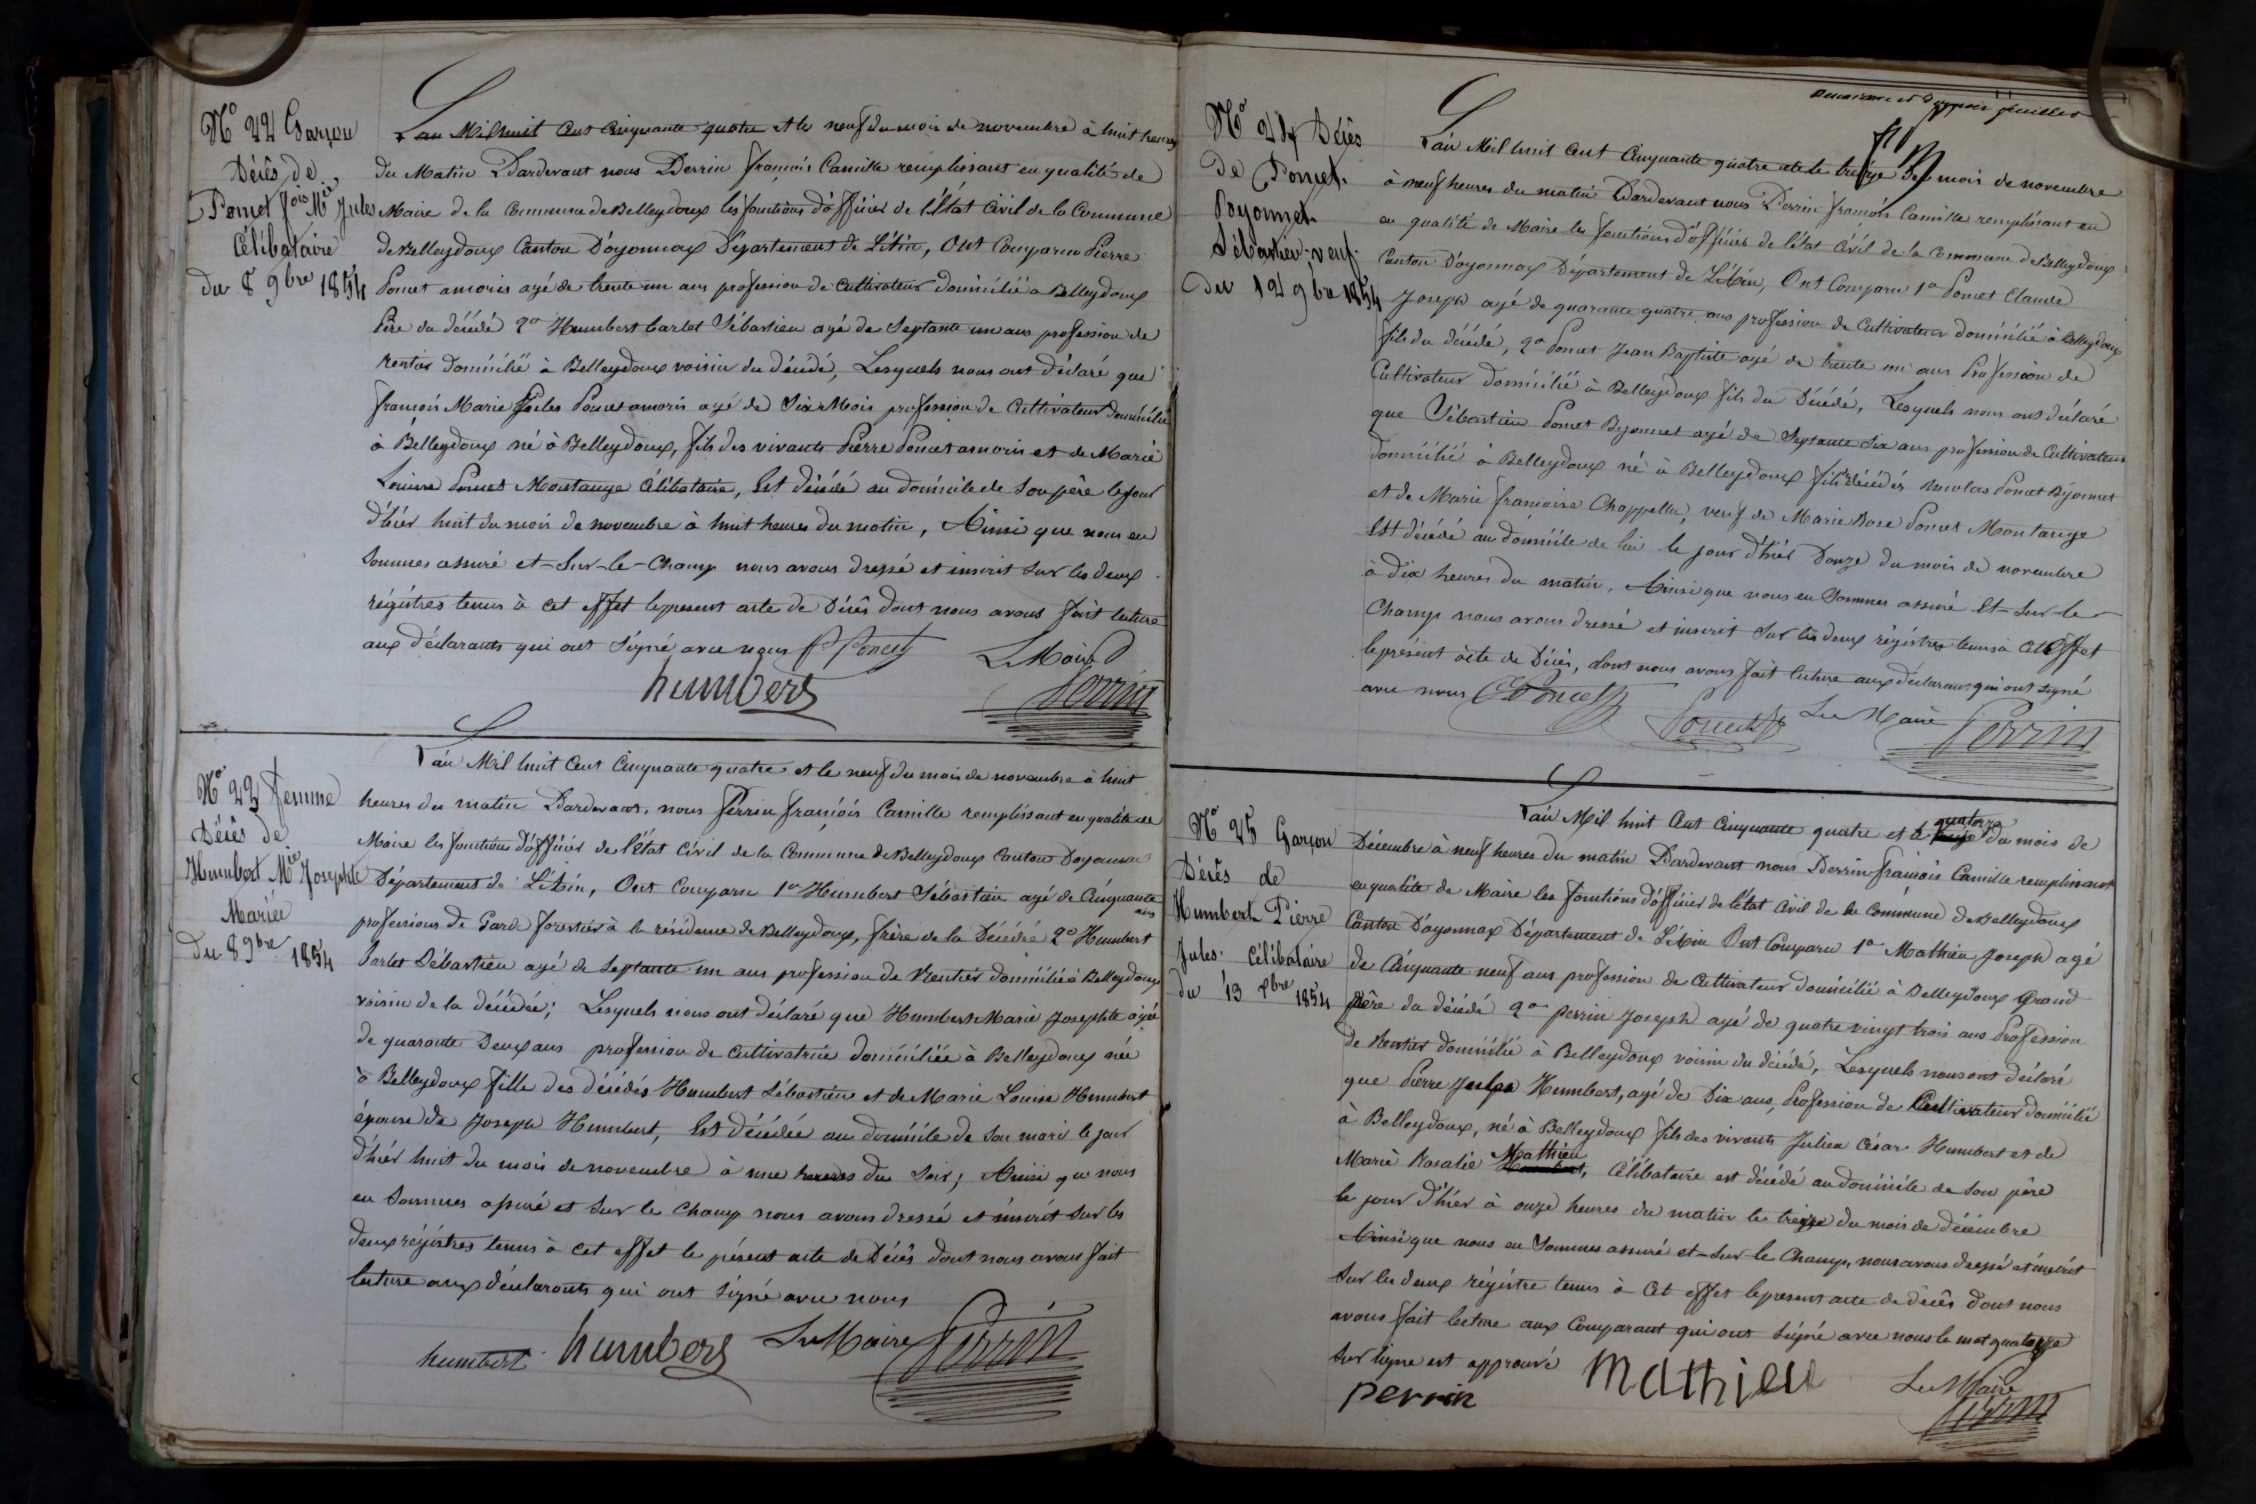 No 22 Garçon
Décès de
Poncet fois Mie Jules
Célibataire
du 8 9bre 1854
L'an Mil huit Cent Cinquante quatre et le neuf du mois de novembre à huit heures
du Matin Pardevant nous Perrin françois Camille remplissant en qualité de
Maire de la Commune de Belleydoux les fonctions d'officier de l'État Civil de la Commune
de Belleydoux Canton D'oyonnax Département de L'Ain, Ont Comparu Pierre
Poncet amoris agé de trente un ans profession de Cultivateur domicilié à Belleydoux
Père du décédé 2o Humbert barlet Sébastien agé de Septante un ans profession de
rentier domicilié à Belleydoux voisin du décédé, Lesquels nous ont déclaré que
françois Marie Jules Poncet amoris agé de Six Mois profession de Cultivateur domicilié
à Belleydoux né à Belleydoux, fils des vivants Pierre Poncet amoris et de Marie
Louise Poncet Montange Célibataire, Est décédé au domicile de Son père le jour
d'hier huit du mois de novembre à huit heures du matin, Ainsi que nous en
Sommes assuré et-Sur-le-Champ nous avons dressé et inscrit Sur les deux
régistres tenus à cet effet le present acte de Décès dont nous avons fait lecture
aux déclarants qui ont Signé avec nous P Poncet Le Maire
humbert Perrin
No 23 femme
Décès de
Humbert Mie Josephte
Mariée
Du 8 9bre 1854
L'an Mil huit Cent Cinquante quatre et le neuf du mois de novembre à huit
heures du matin Pardevant nous Perrin françois Camille remplissant en qualité de
Maire les fonctions d'officier de l'État Civil de la Commune de Belleydoux Canton D'oyonnax
Département de L'Ain, Ont Comparu 1o Humbert Sébastien agé de Cinquante
ans
professions de Gard forestier à la résidence de Belleydoux, frère de la Décédée 2o Humbert
barlet Sébastien agé de Septante un ans profession de Rentier domicilié à Belleydoux
voisin de la décédée; Lesquels nous ont déclaré que Humbert Marie Josephte agée
de quarante Deux ans profession de Cultivatrice domiciliée à Belleydoux née
à Belleydoux fille des décédés Humbert Sébastien et de Marie Louise Humbert
épouse de Joseph Humbert, Est décédée au domicile de Son mari le jour
d'hier huit du mois de novembre à une heures du Soir; Ainsi que nous
en Sommes assuré et Sur le Champ nous avons dressé et inscrit Sur les
deux régistres tenus à cet effet le présent acte de Décès dont nous avons fait
lecture aux déclarants qui ont Signé avec nous
humbert humbert Le Maire Perrin
No 24 Décès
De Poncet
Poyonnet
Sébastien veuf
Du 12 9bre 1854
feuillet
L'an Mil huit Cent Cinquante quatre et le treize du mois de novembre
à neuf heures du matin Pardevant nous Perrin françois Camille remplissant en
en qualité de Maire les fonctions d'officier de l'état Civil de la Commune de Belleydoux
Canton D'oyonnax Département de L'Ain, Ont Comparu 1o Poncet Claude
Joseph agé de quarante quatre ans profession de Cultivateur domicilié à Belleydoux
fils du décédé, 2o Poncet Jean Baptiste agé de trente un ans Profession de
Cultivateur domicilié à Belleydoux fils du Décédé, Lesquels nous ont déclaré
que Sébastien Poncet Byonnet agé de Septante Six ans profession de Cultivateur
domicilié à Belleydoux né à Belleydoux fils décédés nicolas Poncet Byonnet
et de Marie françoise Chappellu, veuf de Marie Rose Poncet Montange
Est décédé au domicile de lui le jour d'hier Douze du mois de novembre
à dix heures du matin, Ainsi que nous en Sommes assuré Et-Sur-le-
Champ nous avons dressé et inscrit Sur les deux régistres tenus à Cet Effet
le présent acte de Décès, dont nous avons fait lecture aux déclarans qui ont signé
avec nous C Poncet
Poncet Le Maire Perrin
No 25 Garçon
Décès de
Humbert Pierre
Jules Célibataire
du 13 xbre 1854
quatorze
L'an Mil huit Cent Cinquante quatre et le treize du mois de
Décembre à neuf heures du matin Pardevant nous Perrin françois Camille remplissant
en qualité de Maire les fonctions d'officier de l'état Civil de la Commune de Belleydoux
Canton D'oyonnax Département de L'Ain Ont Comparu 1o Mathieu Joseph agé
de Cinquante neuf ans profession de Cultivateur domicilié à Belleydoux Grand
père du décédé 2o perrin Joseph agé de quatre vingt trois ans Profession
de Rentier domicilié à Belleydoux voisin du décédé, Lesquels nous ont déclaré
que Pierre Jules Humbert, agé de Dix ans, Profession de Cultivateur domicilié
à Belleydoux, né à Belleydoux fils des vivants Julien César Humbert et de
Marie Rosalie Mathieu Humbert, Célibataire est décédé au domicile de Son père
le jour d'hier à onze heures du matin le treize du mois de décembre
Ainsi que nous en Sommes assuré et-Sur le Champ, nous avons dressé et inscrit
Sur les deux régistre tenus à Cet effet le present acte de décès dont nous
avons fait lecture aux Comparant qui ont Signé avec nous le mot quatorze
Sur ligne est approuvé Mathieu Le Maire
perrin Perrin